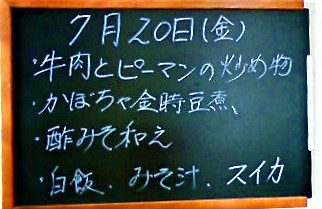 7月20日(金)
・牛肉とピーマンの炒め物
・かぼちゃ金時豆煮、
・酢みそ和え
・白飯.みそ汁.スイカ